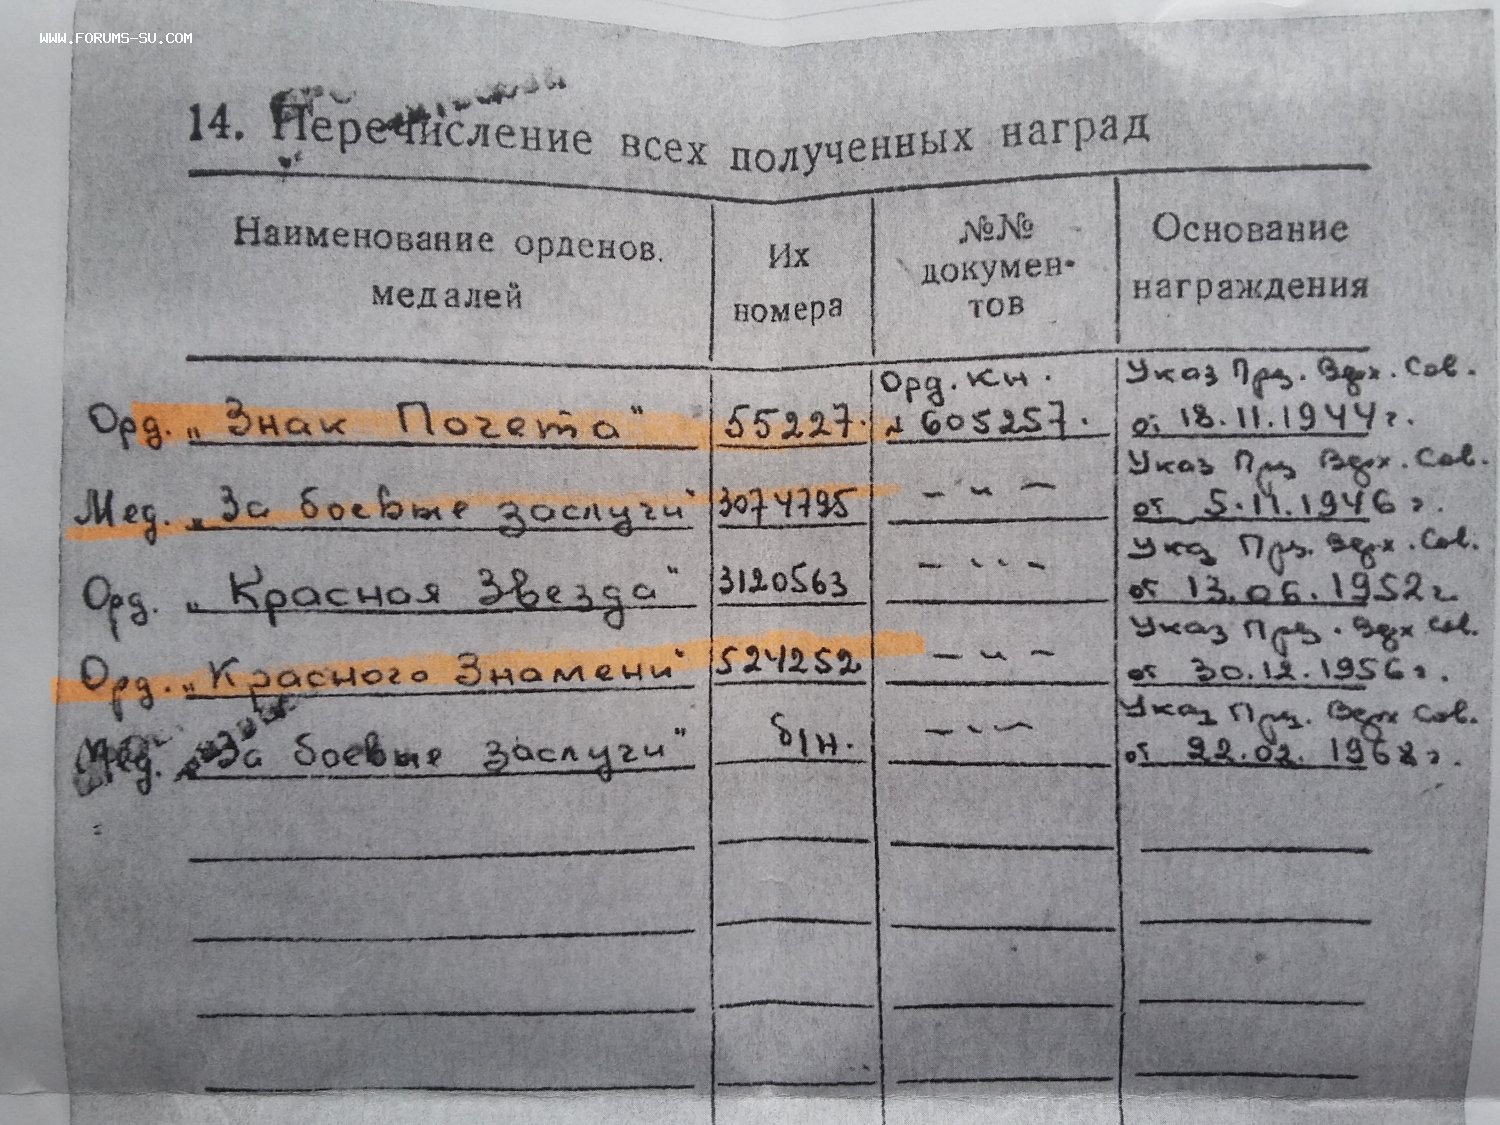 WWW.FORUMS-SU.COM
14. Перечисление всех полученных наград
Наименование орденов.
медалей
Их
номера
№№
докумен-
тов
Основание
награждения
Орд. „Знак Почета" 55227. Орд. кн. № 605257. Указ През. Верх. Сов.
от 18.11.1944 г.
Мед. „За боевые заслуги" 3074795 – „ – Указ През Верх. Сов.
от 5.11.1946 г.
Орд. „Красная Звезда" 3120563 – „ – Указ През. Верх. Сов.
от 13.06.1952 г.
Орд. „Красного Знамени" 524252 – „ – Указ През. Верх Сов.
от 30.12.1956 г.
Мед. „За боевые заслуги" б/н. – „ – Указ През. Верх Сов.
от 22.02.1968 г.